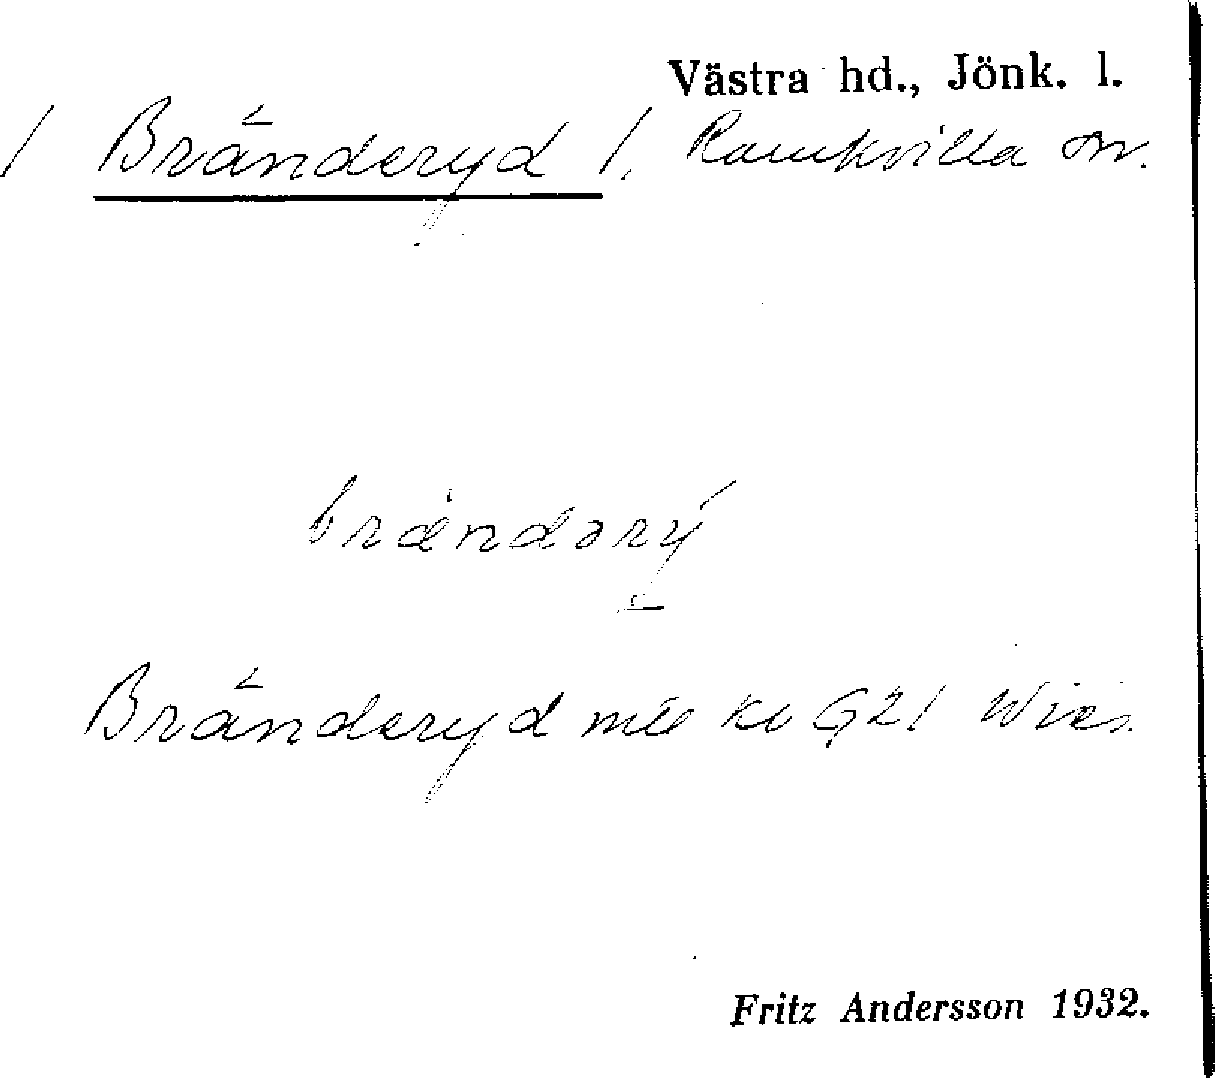 Västra hd., Jönk. l.
/ Bränderyd /. Ramkvilla sn.
brændərý
Bränderyd mtl KB G21 Wies.
Fritz Andersson 1932.